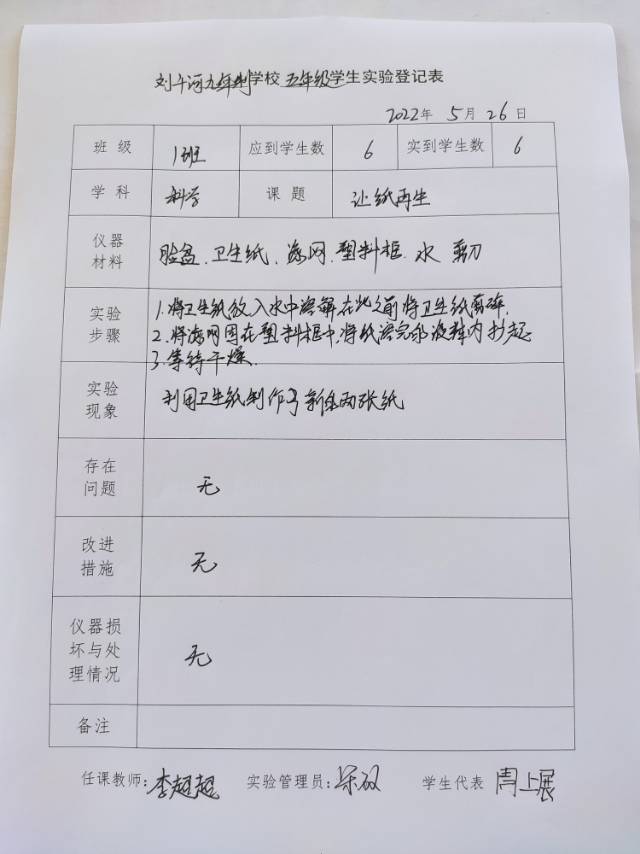 刘午河九年制学校五年级学生实验登记表
2022年 5月26日
班 级 1班 应到学生数 6 实到学生数 6
学 科 科学 课 题 让纸再生
仪器材料 脸盆、卫生纸、 网、塑料框、水 剪刀
实验步骤 1.将卫生纸放入水中溶解在此之前将卫生纸剪碎,
2.将 网固在塑料框中,将纸溶完 液 内抄起
3.等待干燥.
实验现象 利用卫生纸制作了新 两张纸
存在问题 无
改进措施 无
仪器损坏与处理情况 无
备注
任课教师:李超超 实验管理员: 双 学生代表 周上展